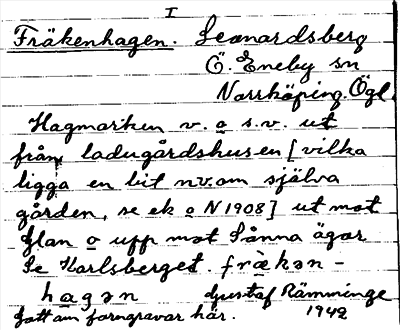 I
Fräkenhagen. Leonardsberg
Ö. Eneby sn
Norrköping. Ögl.
Hagmarken v. o s.v. ut
från ladugårdshusen [vilka
ligga en bit nv.om själva
gården, se ek o N 1908] ut mot
Glan o upp mot Sånna ägor
Se Karlsberget. fräkən-
hagən Gustaf Rämminge
Gott om forngravar här. 1942